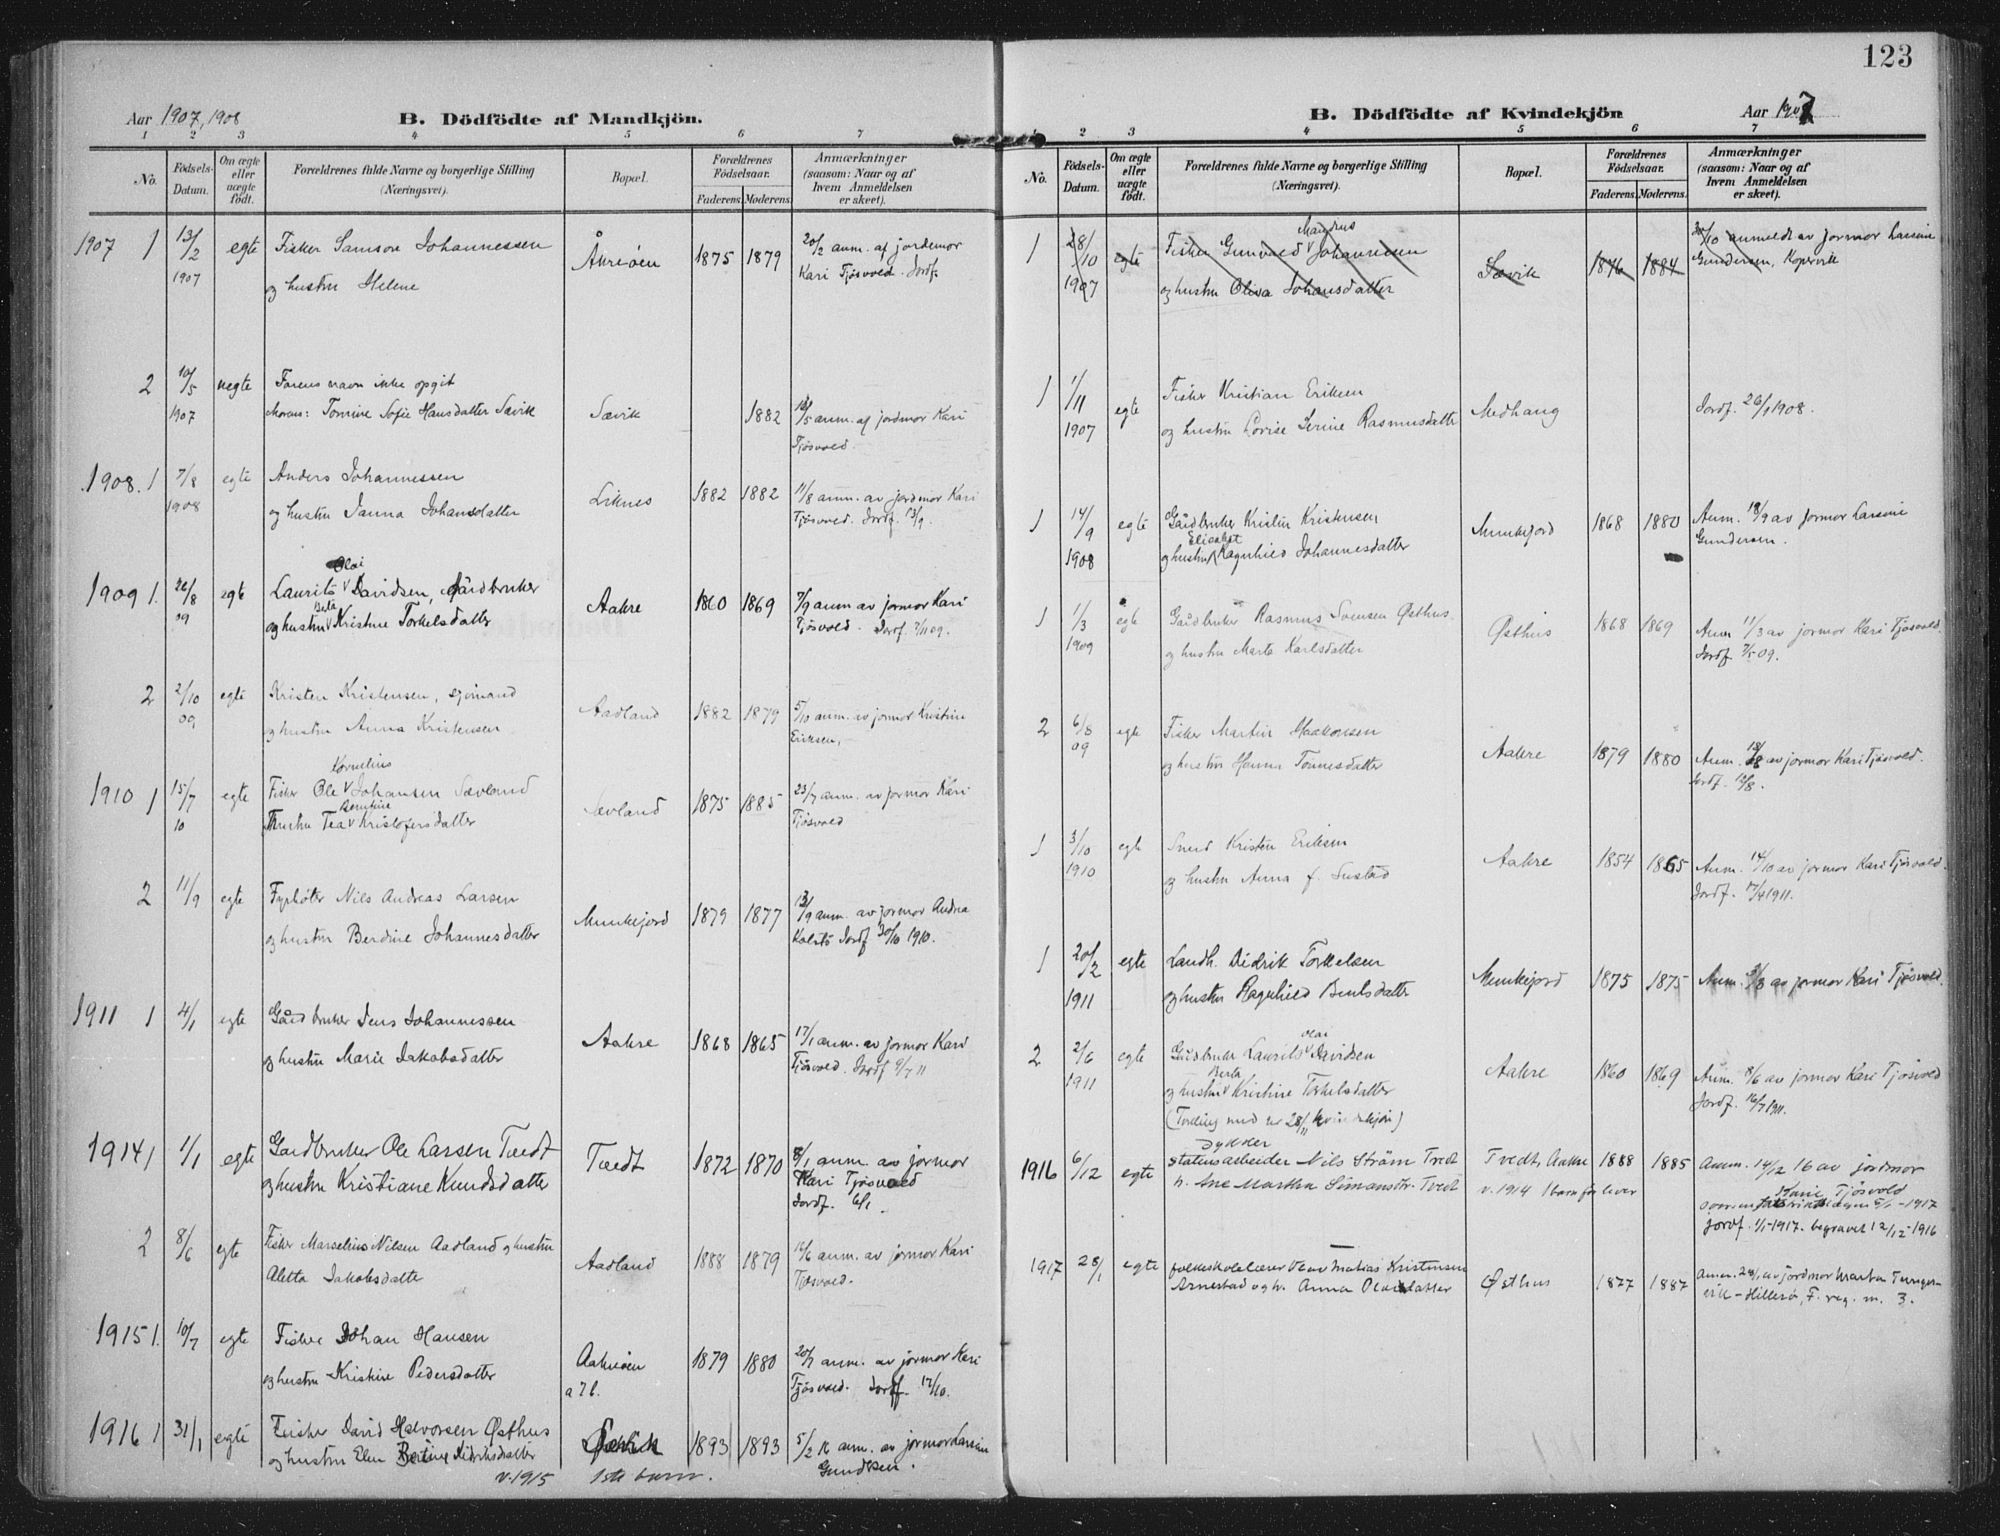 123
Aar 1907, 1908
B. Dödfödte af Mandkjön.
1 2 3 4 5 6 7
No.
Födsels-Datum.
Om ægte eller uægte födt.
Forældrenes fulde Navne og borgerlige Stilling (Næringsvei).
Bopæl.
Forældrenes Födselsaar.
Faderens. Moderens.
Anmærkninger (saasom: Naar og af hvem Anmeldelsen er skeet).
1907 1 13/2 egte Fisker Samson Johannessen Åkreøen 1875 1879 20/2 anm. af jordemor
1907 og hustru Helene Kari Tjøsvold. Jordf.
2 10/5 uegte Farens navn ikke opgit
1907 Moren: Tomine Sofie Hansdatter Sævik Sævik 1882 /5 anm. af jordmor Kari
Tjøsvold.
1908. 1 7/8 egte Anders Johannessen Liknes 1882 1882 11/8 anm. av jordmor Kari
1908 og hustru Janna Johansdatter Tjøsvold. Jordf. 13/9.
Olai
1909 1. 26/8 egte Laurits Davidsen, Gårdbruker Aakre 1860 1869 7/9 anm av jormor Kari
Berta
09 og hustru Kristine Torkelsdatter Tjøsvold. Jordf. 7/11 09.
2 2/10 egte Kristen Kristensen, sjømand Aadland 1882 1879 5/10 anm. av jormor Kristine
09 og hustru Anna Kristensen Eriksen.
Kornelius
1910 1 15/7 egte Fisker Ole Johansen Sævland Sævland 1875 1885 23/7 anm. av jormor Kari
10 hustru Tea Kristofersdatter Tjøsvold
2 11/9 egte Fyrbøter Nils Andreas Larsen Munkejord 1879 1877 13/9 anm. av jormor Andrea
og hustru Berdine Johannesdatter Kolstø Jordf 30/10 1910.
1911 1 4/1 egte Gårdbruker Jens Johannessen Aakre 1868 1865 17/1 anm. av jormor Kari
og hustru Marie Jakobsdatter Tjøsvold. Jordf 9/7 11
1914 1 1/1 egte Gardbruker Ole Larsen Tvedt Tvedt 1872 1870 8/1 anm. av jormor
og hustru Kristiane Knudsdatter Kari Tjøsvold
Jordf. 6/1.
2 8/6 egte Fisker Marselius Nilsen Aadland og hustru Aadland 1888 1879 16/6 anm. av jormor Kari
Aletta Jakobsdatter Tjøsvold.
1915 1. 10/7 egte Fisker Johan Hansen Aakreøen 1879 1880 20/7 anm. av jormor Kari
og hustru Kristine Pedersdatter a 7 b. Tjøsvold. Jordf. 17/10.
1916 1 31/1 egte Fisker David Halvorsen Østhus 1893 1893 5/2 16 anm. av jormor Larsine
og hustru Elen Bertine Didriksdatter Gundersen.
v. 1915 1ste barn.
B. Dödfödte af Kvindekjön
Aar 1907
1 2 3 4 5 6 7
No.
Födsels-Datum.
Om ægte eller uægte födt.
Forældrenes fulde Navne og borgerlige Stilling (Næringsvei).
Bopæl.
Forældrenes Födselsaar.
Faderens. Moderens.
Anmærkninger (saasom: Naar og af hvem Anmeldelsen er skeet).
Mandrus
1 28/10 egte Fisker Gunvald Johannesen Sævik 1876 1884 30/10 anmeldt av jormor Larsine
1907 og hustru Oliva Johansdatter Gundersen, Kopervik
1 1/11 egte Fisker Kristian Eriksen Medhaug Jordf. 26/1 1908.
1907 og hustru Lovise Serine Rasmusdatter
1 14/9 egte Gårdbruker Kristen Kristensen Munkejord 1868 1880 Anm. 18/9 av jormor Larsine
Elisabet
1908 og hustru Ragnhild Johannesdatter Gundersen.
1 1/3 egte Gårdbruker Rasmus Svensen Østhus. Østhus 1868 1869 Anm 11/3 av jormor Kari Tjøsvold.
1909 og hustru Marta Karlsdatter Jordf. 7/5 09.
2 6/8 egte Fisker Martin Haakonsen Aakre 1879 1880 Anm. 18/8 av jormor Kari Tjøsvold.
09 og hustru Hanna Tønnesdatter Jordf. /8.
1 3/10 egte Smed Kristen Eriksen Aakre 1854 1865 Anm. 14/10 av jormor Kari Tjøsvold.
1910 og hustru Anna f. Sustad Jordf. 17/4 1911.
1 20/2 egte Landh. Didrik Torkelsen Munkejord 1875 1875 Anm. /3 av jormor Kari Tjøsvold.
1911 og hustru Ragnhild Bentsdatter
Olai
2 2/6 egte Gårdbruker Laurits Davidsen Aakre 1860 1869 Anm. 8/6 av jormor Kari Tjøsvold
Berta
1911 og hustru Kristine Torkelsdatter Jordf. 16/7 1911.
(Tvilling med nr 28/11 kvindekjøn)
Dykker
1916 6/12 egte statensarbeider Nils Strøm Tvedt Tvedt, Aakre 1888 1885 Anm. 14/12 16 av jordmor
h. Ane Martha Simonsdtr. Tvedt v. 1914 1 barn før lever Karie Tjøsvold
Jordf. 1/1-1917. begravet 12/12-1916
1917 28/1 egte folkeskolelærer Olav Matias Kristensen Østhus 1877 1887 Anm. 29/1 av jordmor Marta Tunger-
Arnestad og h. Anna Olavsdatter vik-Hillersø, F. reg. nr. 3.